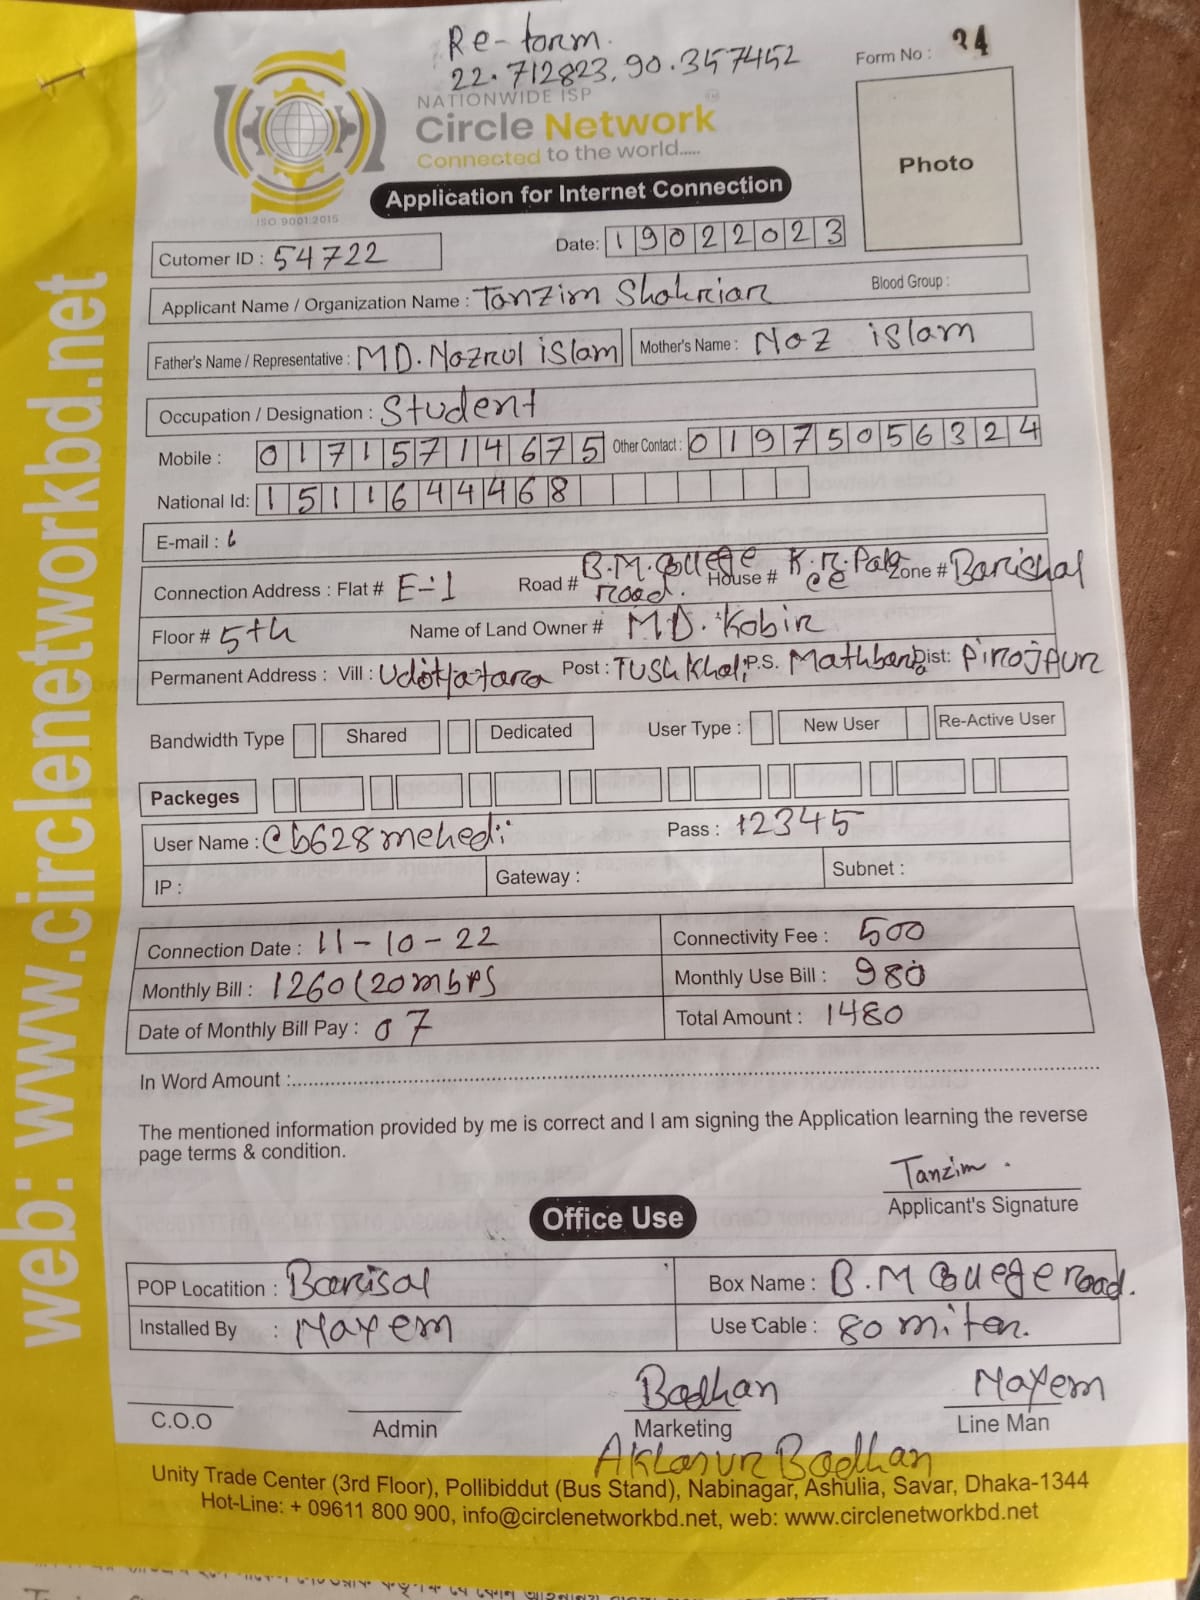 Re-form.
22.712823, 90.357452
Form No : 34
NATIONWIDE ISP
Circle Network
Connected to the world.....
ISO 9001:2015
Photo
Application for Internet Connection
Cutomer ID : 54722
Date: 19022023
Applicant Name / Organization Name : Tanzim Shahriar
Blood Group :
Father's Name / Representative : MD. Nazrul islam
Mother's Name : Naz islam
Occupation / Designation : Student
Mobile : 01715714675 Other Contact : 01975056324
National Id: 1511644468
E-mail :
Connection Address : Flat # E-1 Road # B.M. College road. House # K.R. Zone # Barishal
Floor # 5th Name of Land Owner # MD. Kobir
Permanent Address : Vill : Post : Tushkhali P.S. Mathbaria Dist: Pirojpur
Bandwidth Type Shared Dedicated User Type : New User Re-Active User
Packeges
User Name : cb628mehedi Pass : 12345
IP : Gateway : Subnet :
Connection Date : 11-10-22 Connectivity Fee : 500
Monthly Bill : 1260 (20mbps Monthly Use Bill : 980
Date of Monthly Bill Pay : 07 Total Amount : 1480
In Word Amount :
The mentioned information provided by me is correct and I am signing the Application learning the reverse
page terms & condition.
Tanzim.
Applicant's Signature
Office Use
POP Locatition : Barisal Box Name : B.M College road.
Installed By : Nayem Use Cable : 80 miter.
Badhan Nayem
C.O.O Admin Marketing Line Man
Badhan
Unity Trade Center (3rd Floor), Pollibiddut (Bus Stand), Nabinagar, Ashulia, Savar, Dhaka-1344
Hot-Line: + 09611 800 900, info@circlenetworkbd.net, web: www.circlenetworkbd.net
web: www.circlenetworkbd.net